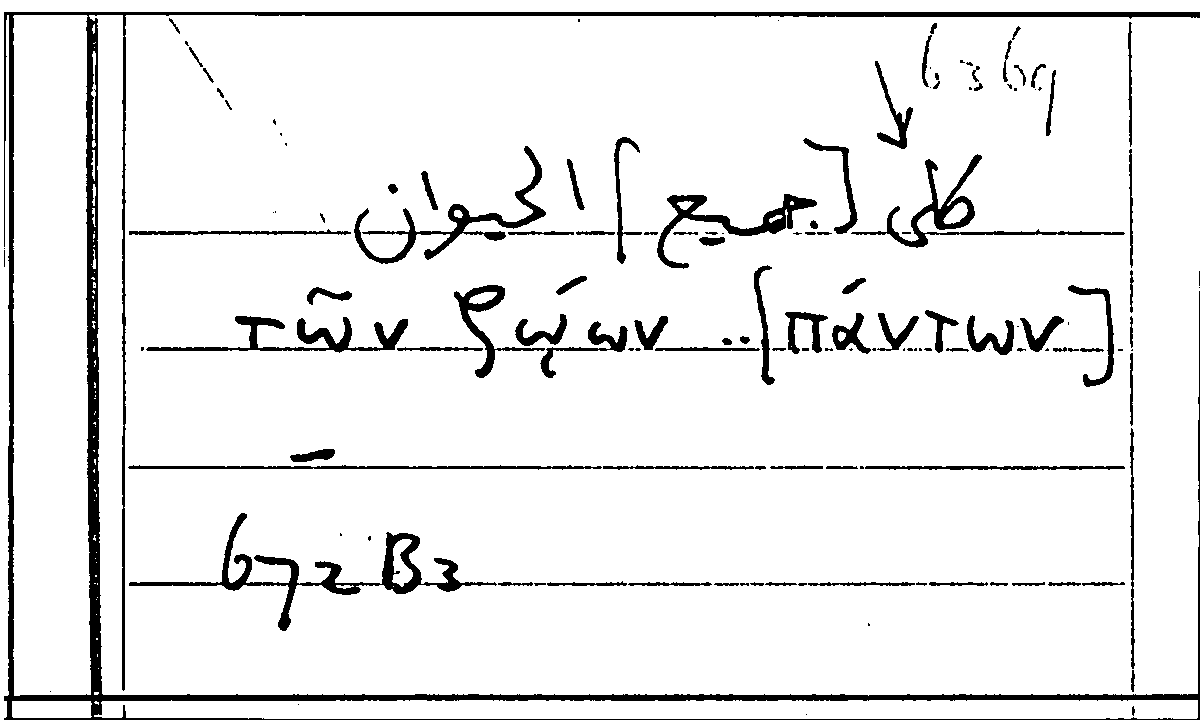 6369
كلى [جميع] الحيوان
τῶν ζῴων .. [πάντων]
–
672 B3